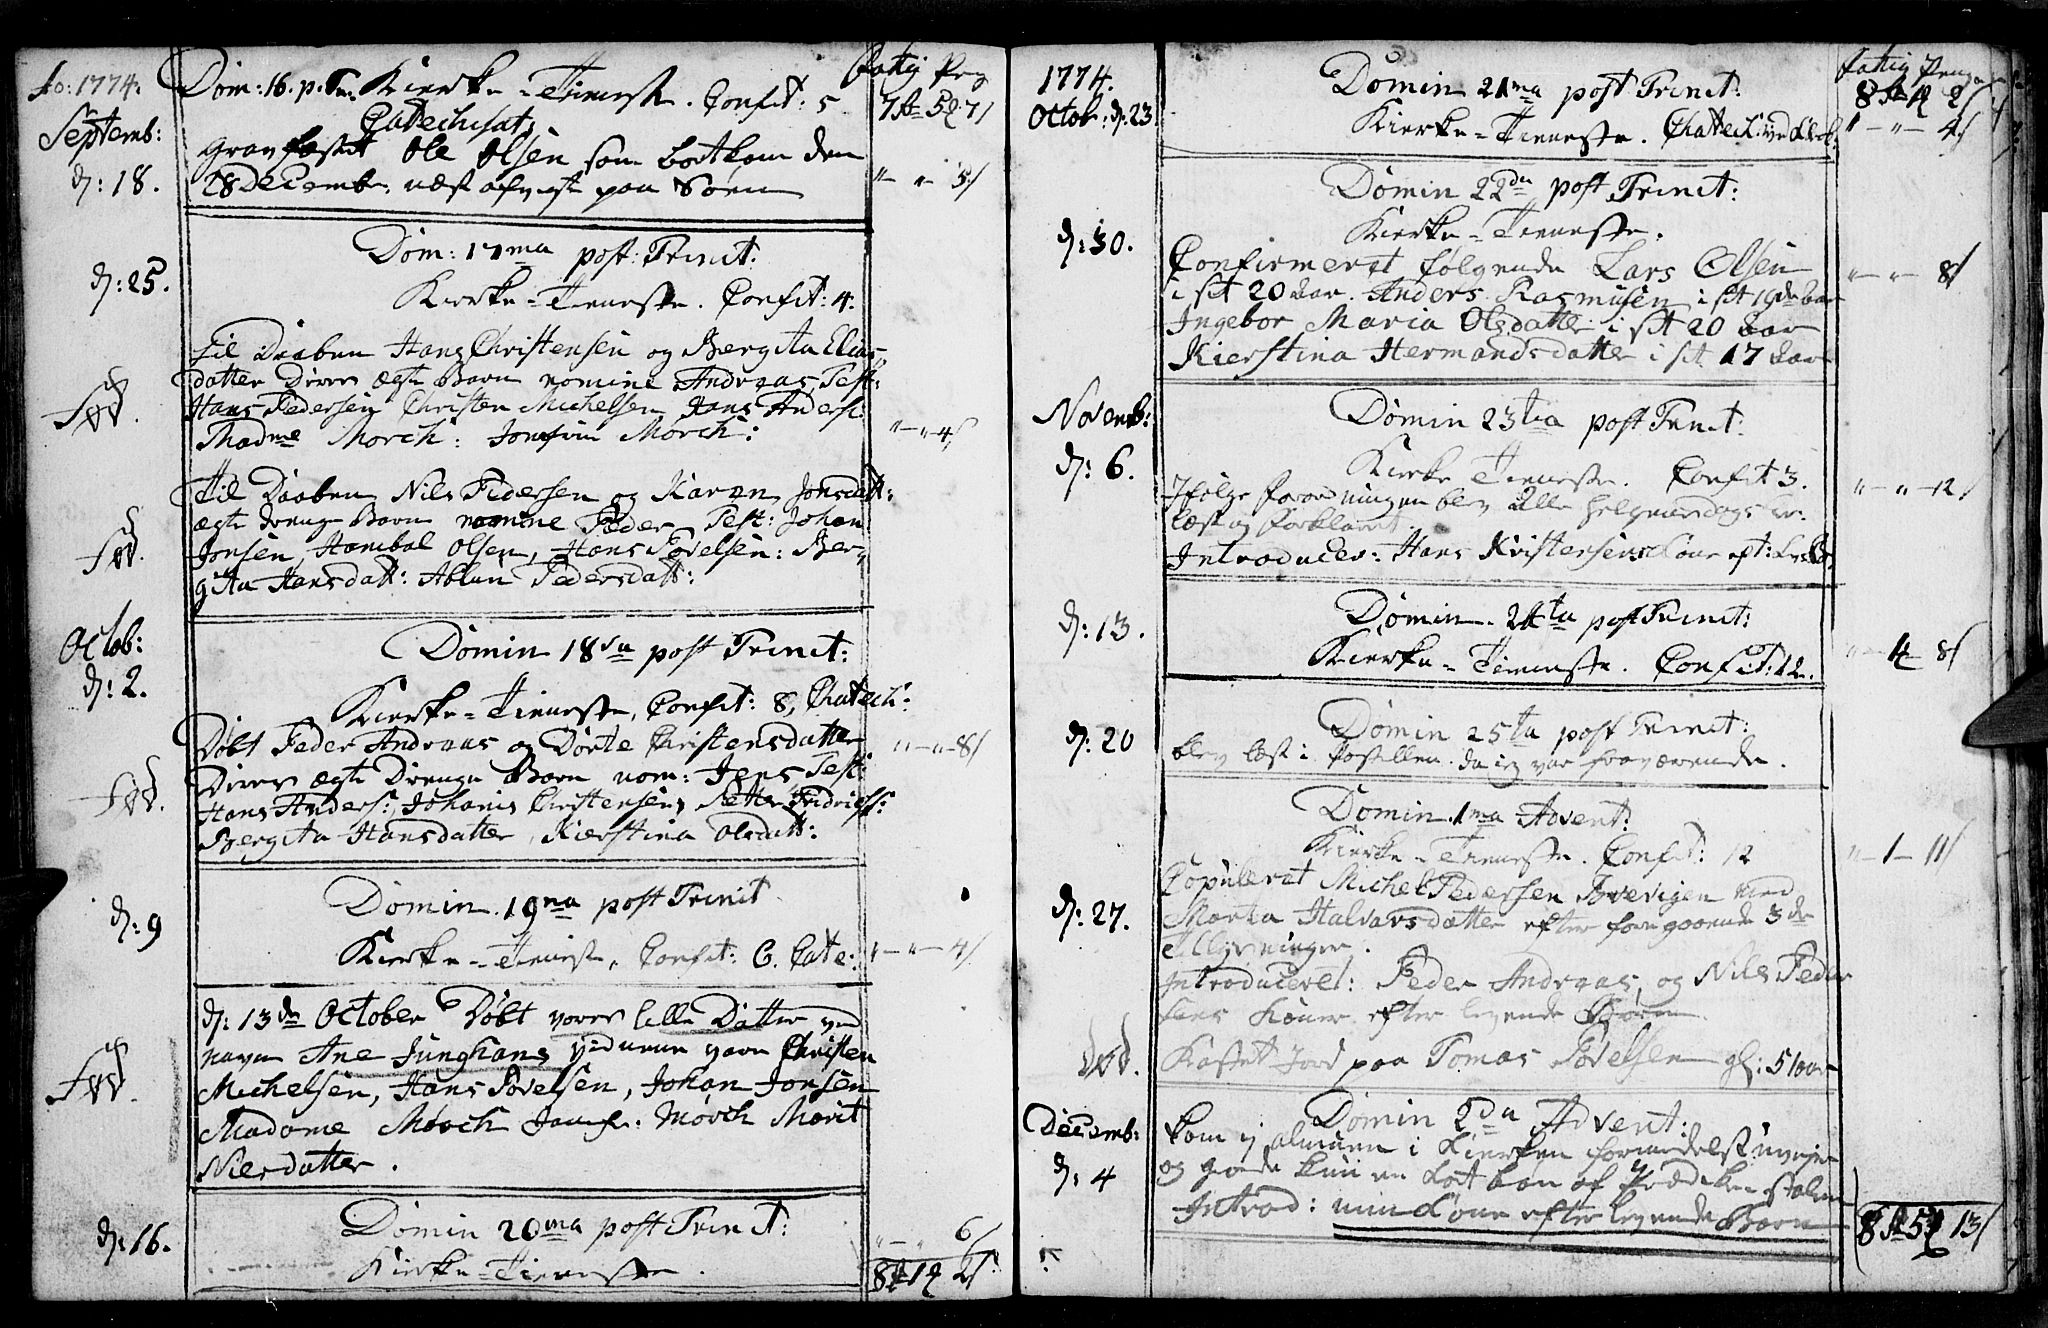 Ao: 1774.
Septemb:
d: 18.
Dom: 16. p. Tr. Kierke-Tieneste. Confit: 5
Catechisat:
Grav fæstet Ole Olsen som bortkom den
28 Decembr. næst afvigte paa Søen
Fattig Peng
" - " - 5 /
Dom: 17ma post: Trinit:
d: 25.
Kierke-Tieneste. Confit: 4:
til Daaben Hans Christensen og Bergita Elias-
datter Deres ægte Barn nomine Andreas Test:
Hans Pedersen Christen Michelsen Hans Anders:
Madme Morch: Jomfrue Morch:
" - " 4 /
Til Daaben Nils Pedersen og Karen Jonsdatt:
ægte Drenge Barn nomine Peder Test: Johan
Jonsen, Hanibal Olsen, Hans Povelsen: Ber-
gita Hansdatt: Ablun Pedersdatt:
Octob:
d: 2.
Domin 18va post Trinit:
Kierke-Tieneste, Confit: 8, Chatech:
Døbt Peder Andreas og Dorte Christensdatter
Deres ægte Drenge Barn nom: Jens Test:
Hans Anders: Johanis Christensen, Petter Fridrichs:
Bergita Hansdatter, Kierstina Olsdatt:
" - " - 8 /
d: 9
Domin. 19na post Trinit
Kierke-Tieneste, Confit: 6. Cate:
" - " - 4 /
d: 13de October Døbt vores lille Datter ved
navn Ane Junghans Vidnerne vare Christen
Michelsen, Hans Povelsen, Johan Jonsen
Madame Morch Jomfr: Morch Marit
Nilsdatter.
d: 16.
Domin 20ma post: Trinit:
Kierke-Tieneste.
" - " 6 /
1774.
Octob: d: 23
Domin 21ma post Trinit:
Kierke-Tieneste. Chatech:
Fattig Penge
" - " - 4 /
Domin 22da post Trinit:
d: 30.
Kierke-Tieneste.
Confirmeret følgende Lars Olsen
i sit 20 Aar. Anders Rasmusen i sit 19de Aar
Ingebor Maria Olsdatter i sit 20 Aar
Kierstina Hermandsdatter i sit 17 Aar
" - " - 8 /
Novemb:
d: 6.
Domin 23tia post Trinit:
Kierke Tieneste. Confit 3.
Ifølge Forordningen blev Alle Helgnesdags
læst og forklaret.
Introduces: Hans Kristensens Kone eft:
" - " - 12 /
d: 13.
Domin. 24ta post Trinit:
Kierke-Tieneste. Confit: 12.
d: 20
Domin 25ta post Trinit:
blev læst i Postillen. da ieg var fraværende.
Domin. 1ma Advent:
Kierke-Tieneste. Confit: 12
" - 1 - 11 /
d: 27.
Copuleret Michel Pedersen med
Marta Halvarsdatter efter foregaaende 3de
Tillysninger.
Introduceret: Peder Andreas, og Nils Peder
sens Koner efter legende Børn
Kastet Jord paa Tomas Povelsen gl: 5 Aar
Decemb:
d: 4
Domin 2da Advent:
kom ej almuen i Kierken formedelst
og giorde kun en kort bøn af Prædikestolen
Introd: min Kone efter legende Barn